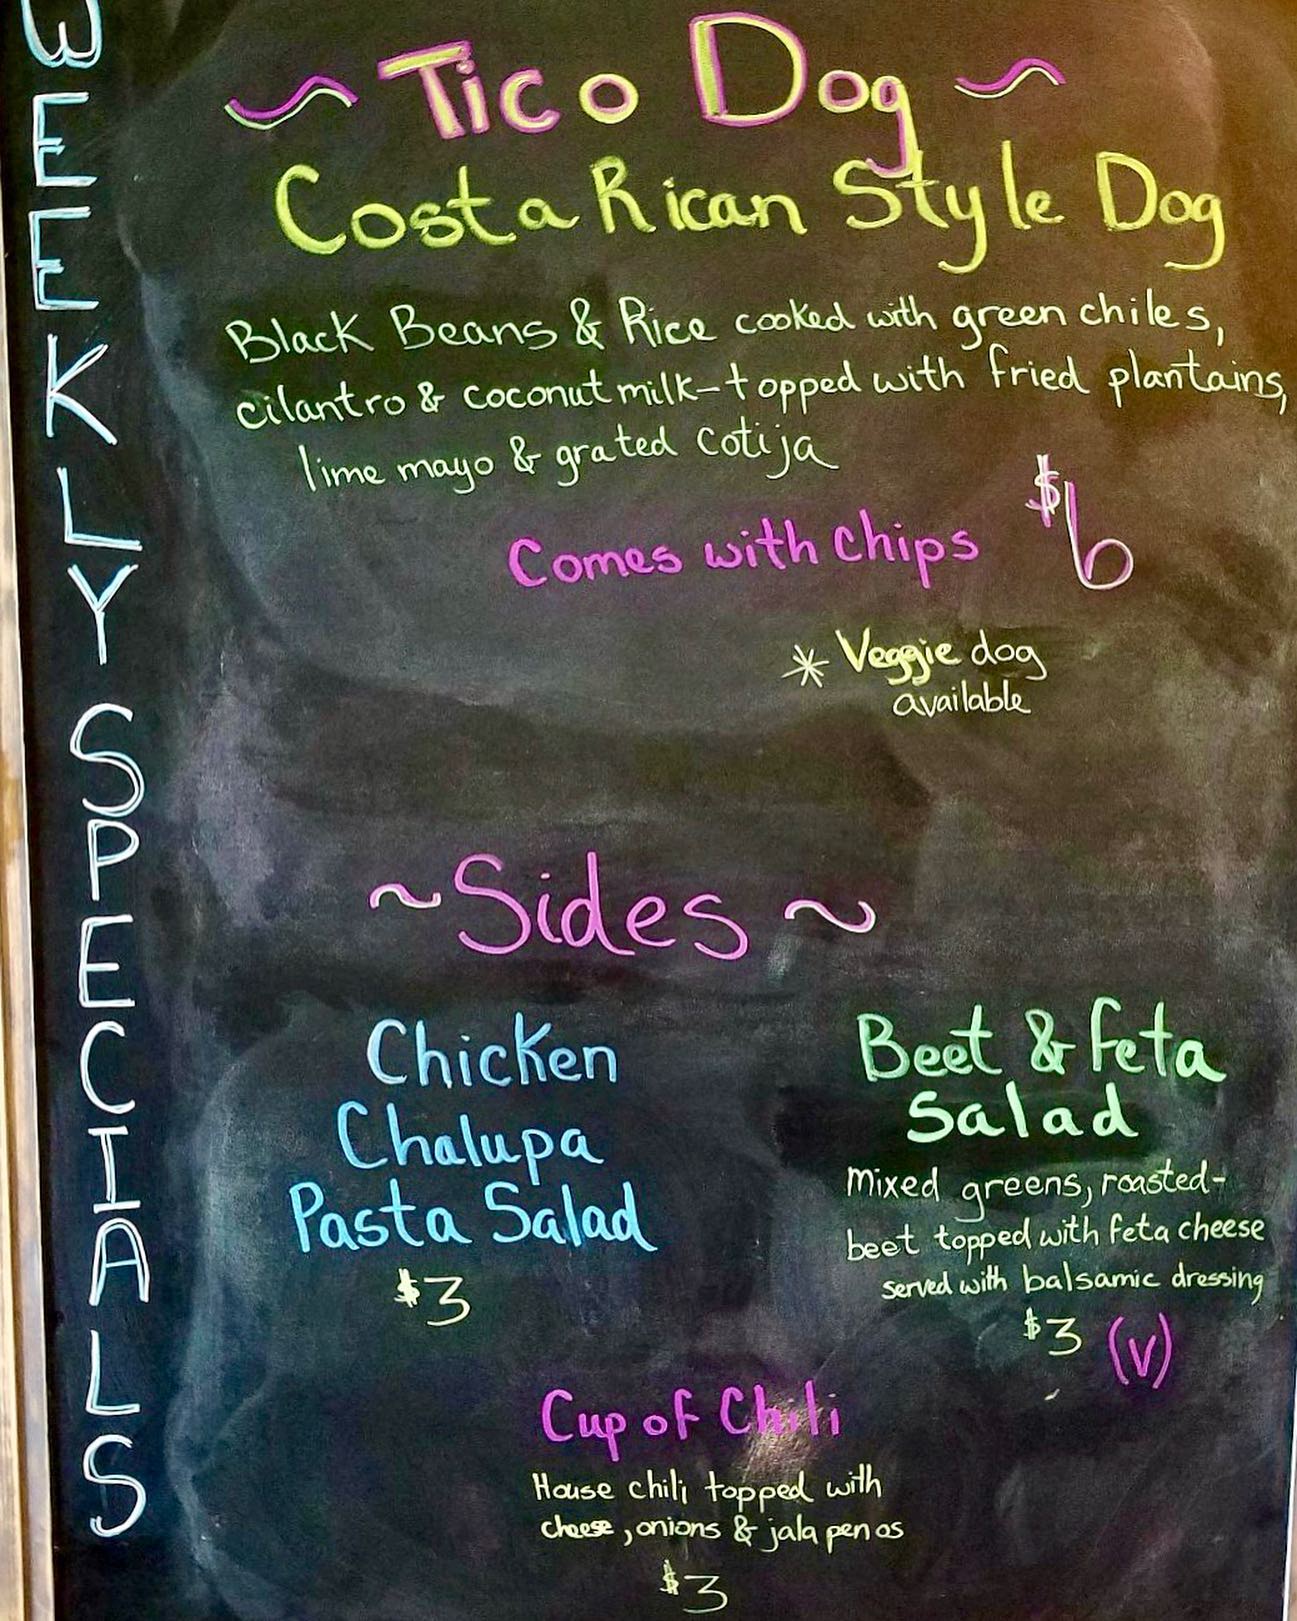 WEEKLY SPECIALS
~ Tico Dog ~
Costa Rican Style Dog
Black Beans & Rice cooked with green chiles,
cilantro & coconut milk-topped with fried plantains,
lime mayo & grated cotija
Comes with chips $6
* Veggie dog
available
~ Sides ~
Chicken
Chalupa
Pasta Salad
$3
Beet & feta
Salad
Mixed greens, roasted-
beet topped with feta cheese
served with balsamic dressing
$3 (v)
Cup of Chili
House chili topped with
cheese, onions & jalapenos
$3